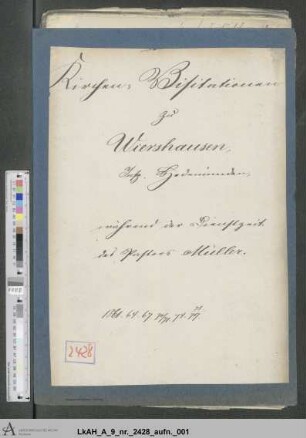 Kirchen-Visitationen
zu
Wiershausen,
Insp. Hedemünden,
während der Dienstzeit
des Pastors Müller.
1861. 64. 67
2428
LkAH_A_9_nr._2428_aufn._001